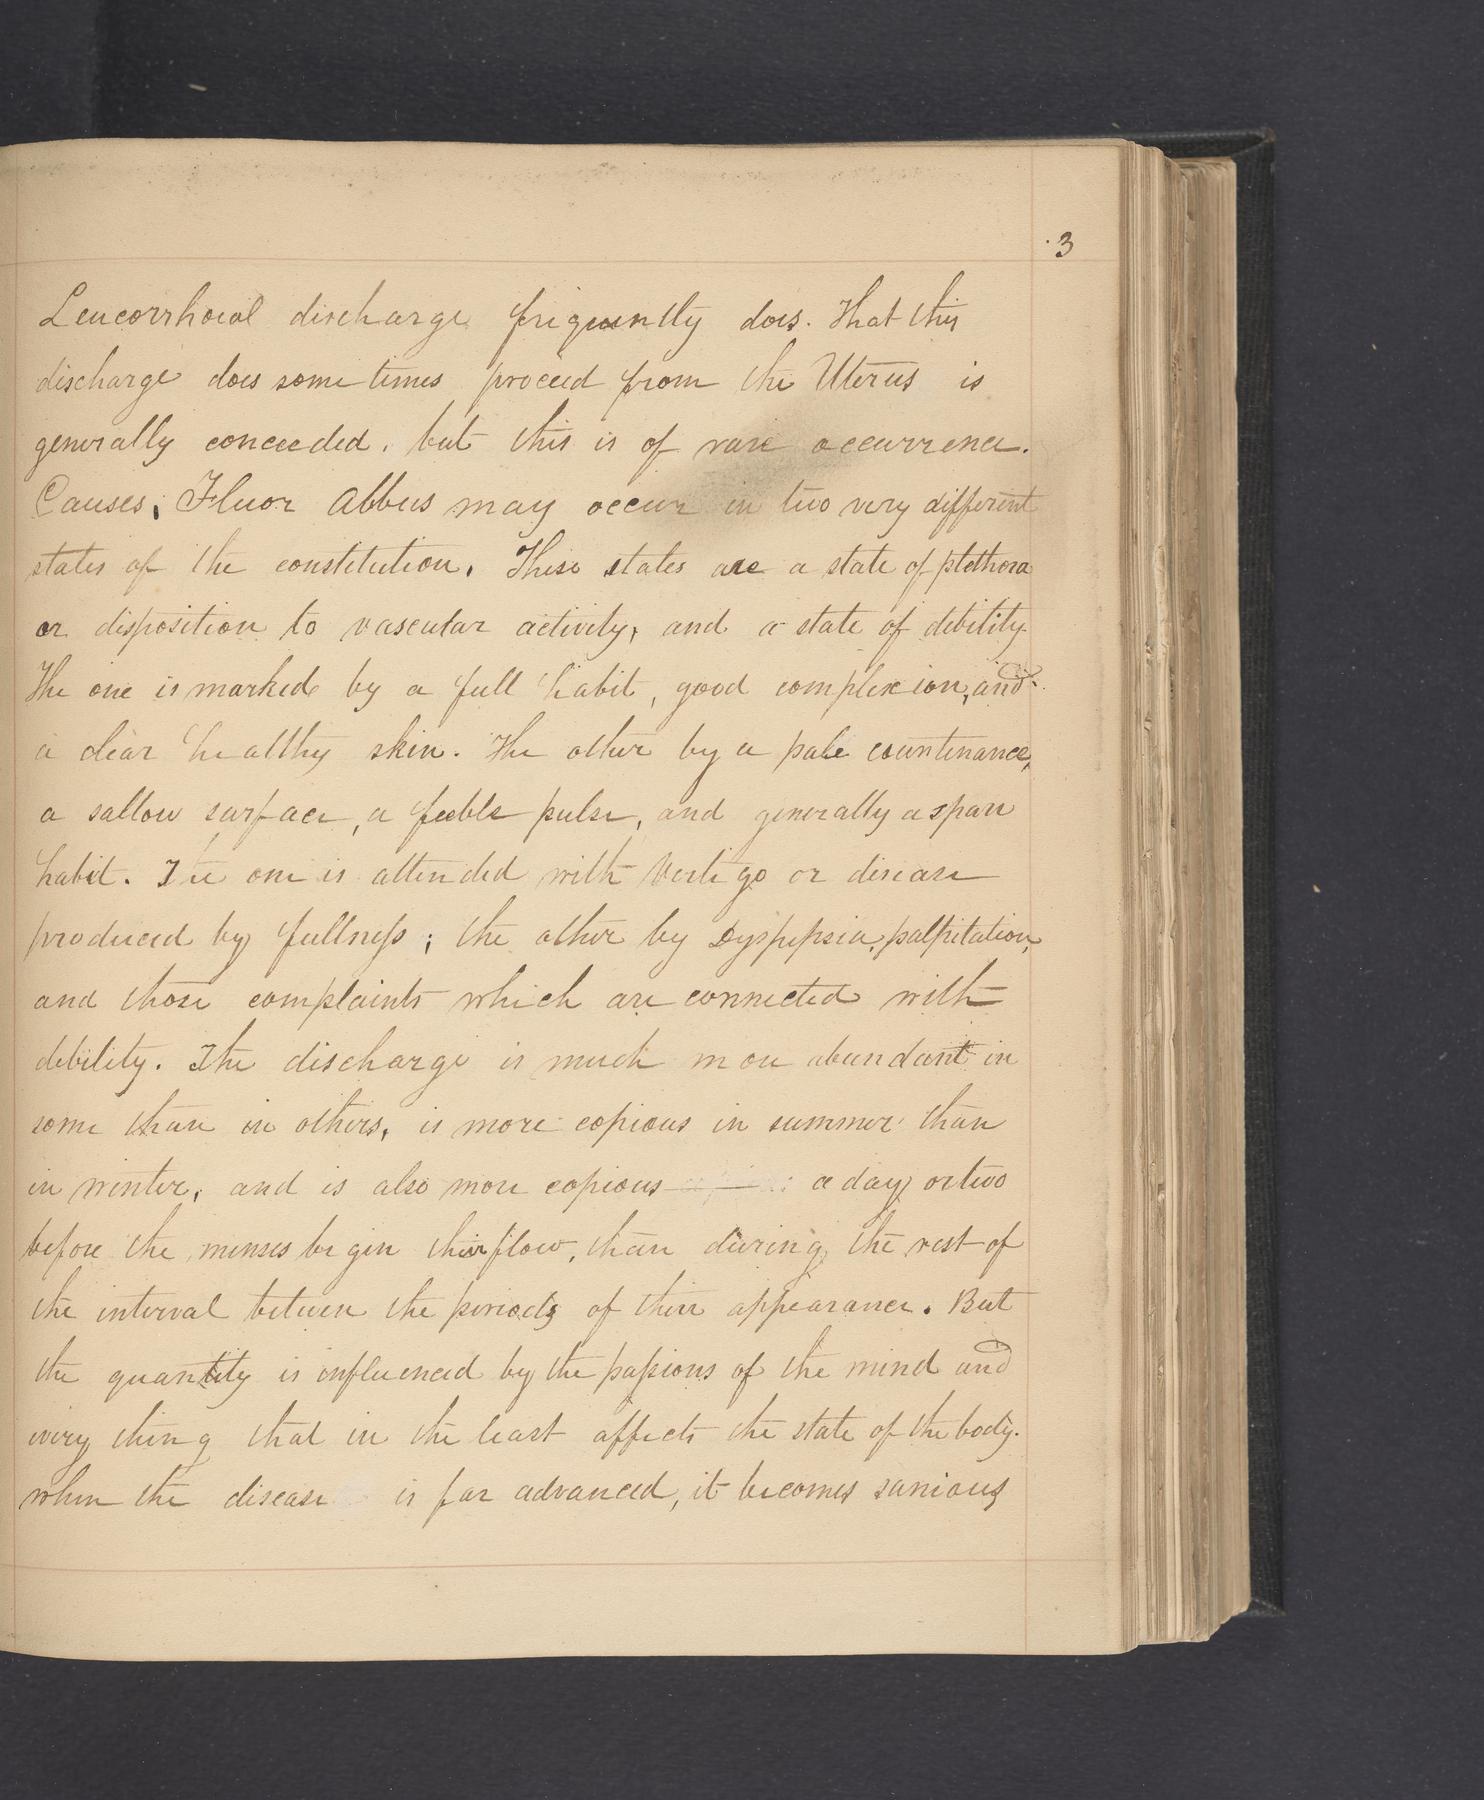 3
Leucorrhoeal discharge frequently does. That this
discharge does some times proceed from the Uterus is
generally conceeded, but this is of rare occurrence.
Causes, Fluor Abbus may occur in two very different
states of the constitution. These states are a state of plethora
or disposition to vascular activity, and a state of debility.
The one is marked by a full habit, good complexion, and
a clear healthy skin. The other by a pale countenance,
a sallow surface, a feeble pulse, and generally a spare
habit. The one is attended with Vertigo or disease
produced by fullness; the other by Dyspepsia, palpitation,
and those complaints which are connected with
debility. The discharge is much more abundant in
some than in others, is more copious in summer than
in winter, and is also more copious a day or two
before the menses begin their flow, than during the rest of
the interval between the periods of their appearance. But
the quantity is influenced by the passions of the mind and
every thing that in the least affects the state of the body.
when the disease is far advanced, it becomes sanious